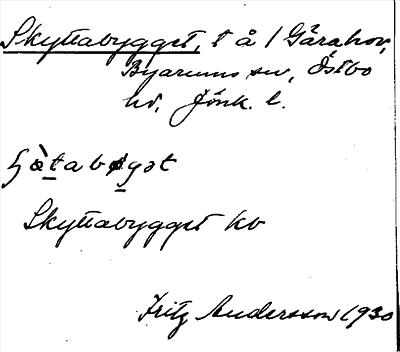 Skyttabygget, t å 1 Gårahov,
Byarums sn, Östbo
hd, Jönk. l.
Skyttabygget kb
Fritz Andersson 1930